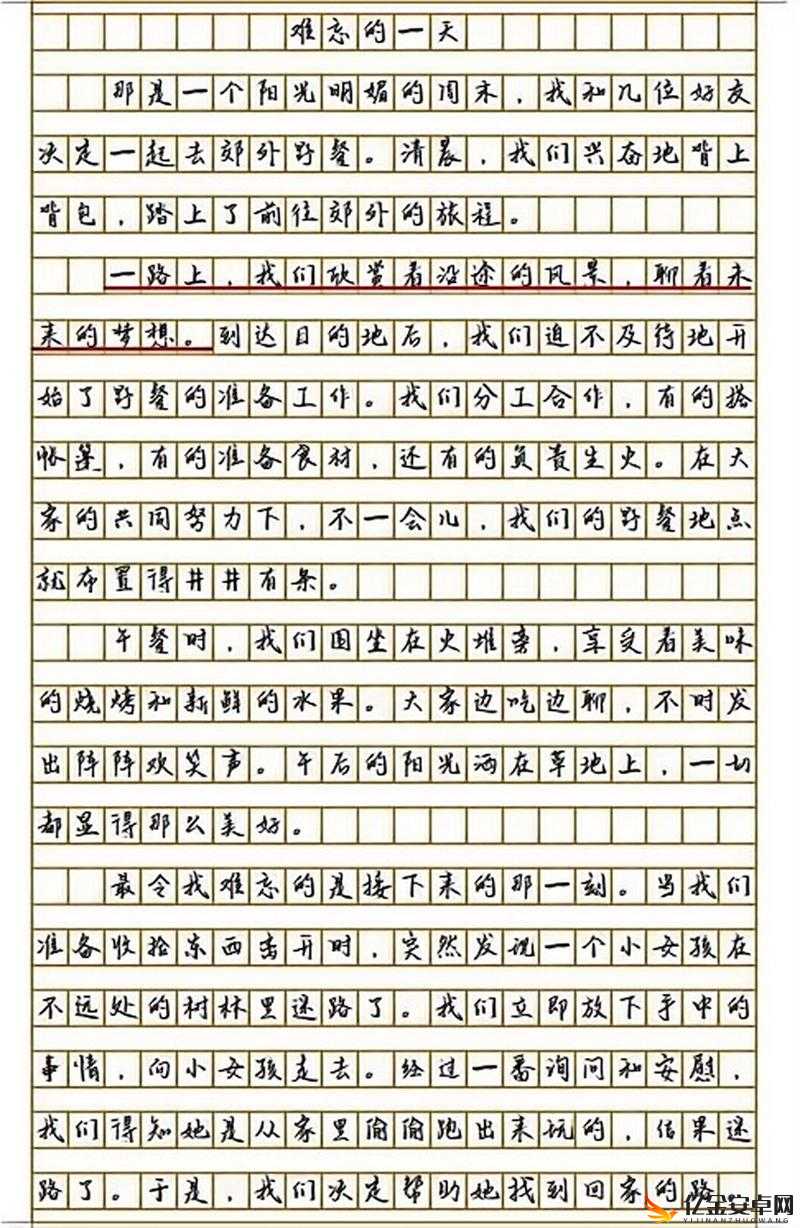 难忘的一天
那是一个阳光明媚的周末，我和几位好友
决定一起去郊外野餐。清晨，我们兴奋地背上
背包，踏上了前往郊外的旅程。
一路上，我们欣赏着沿途的风景，聊着未
来的梦想。到达目的地后，我们迫不及待地开
始了野餐的准备工作。我们分工合作，有的搭
帐篷，有的准备食材，还有的负责生火。在大
家的共同努力下，不一会儿，我们的野餐地点
就布置得井井有条。
午餐时，我们围坐在火堆旁，享受着美味
的烧烤和新鲜的水果。大家边吃边聊，不时发
出阵阵欢笑声。午后的阳光洒在草地上，一切
都显得那么美好。
最令我难忘的是接下来的那一刻。当我们
准备收拾东西离开时，突然发现一个小女孩在
不远处的树林里迷路了。我们立即放下手中的
事情，向小女孩走去。经过一番询问和安慰，
我们得知她是从家里偷偷跑出来玩的，结果迷
路了。于是，我们决定帮助她找到回家的路
亿金安卓网
YIJINANZHUOWANG